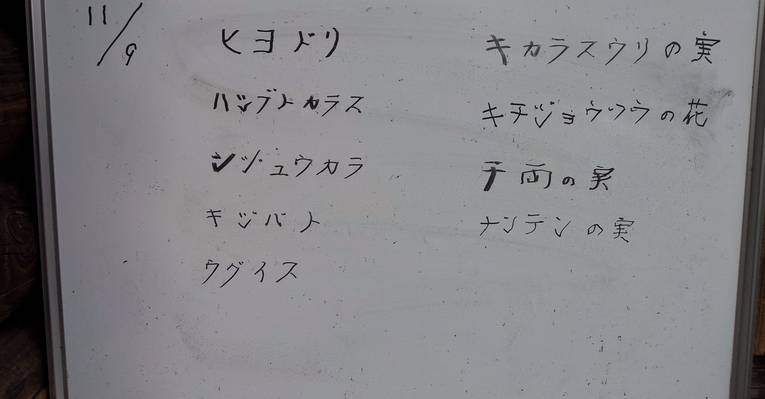 11/9
ヒヨドリ
ハシブトカラス
シジュウカラ
キジバト
ウグイス
キカラスウリの実
キチジョウソウの花
千両の実
ナンテンの実